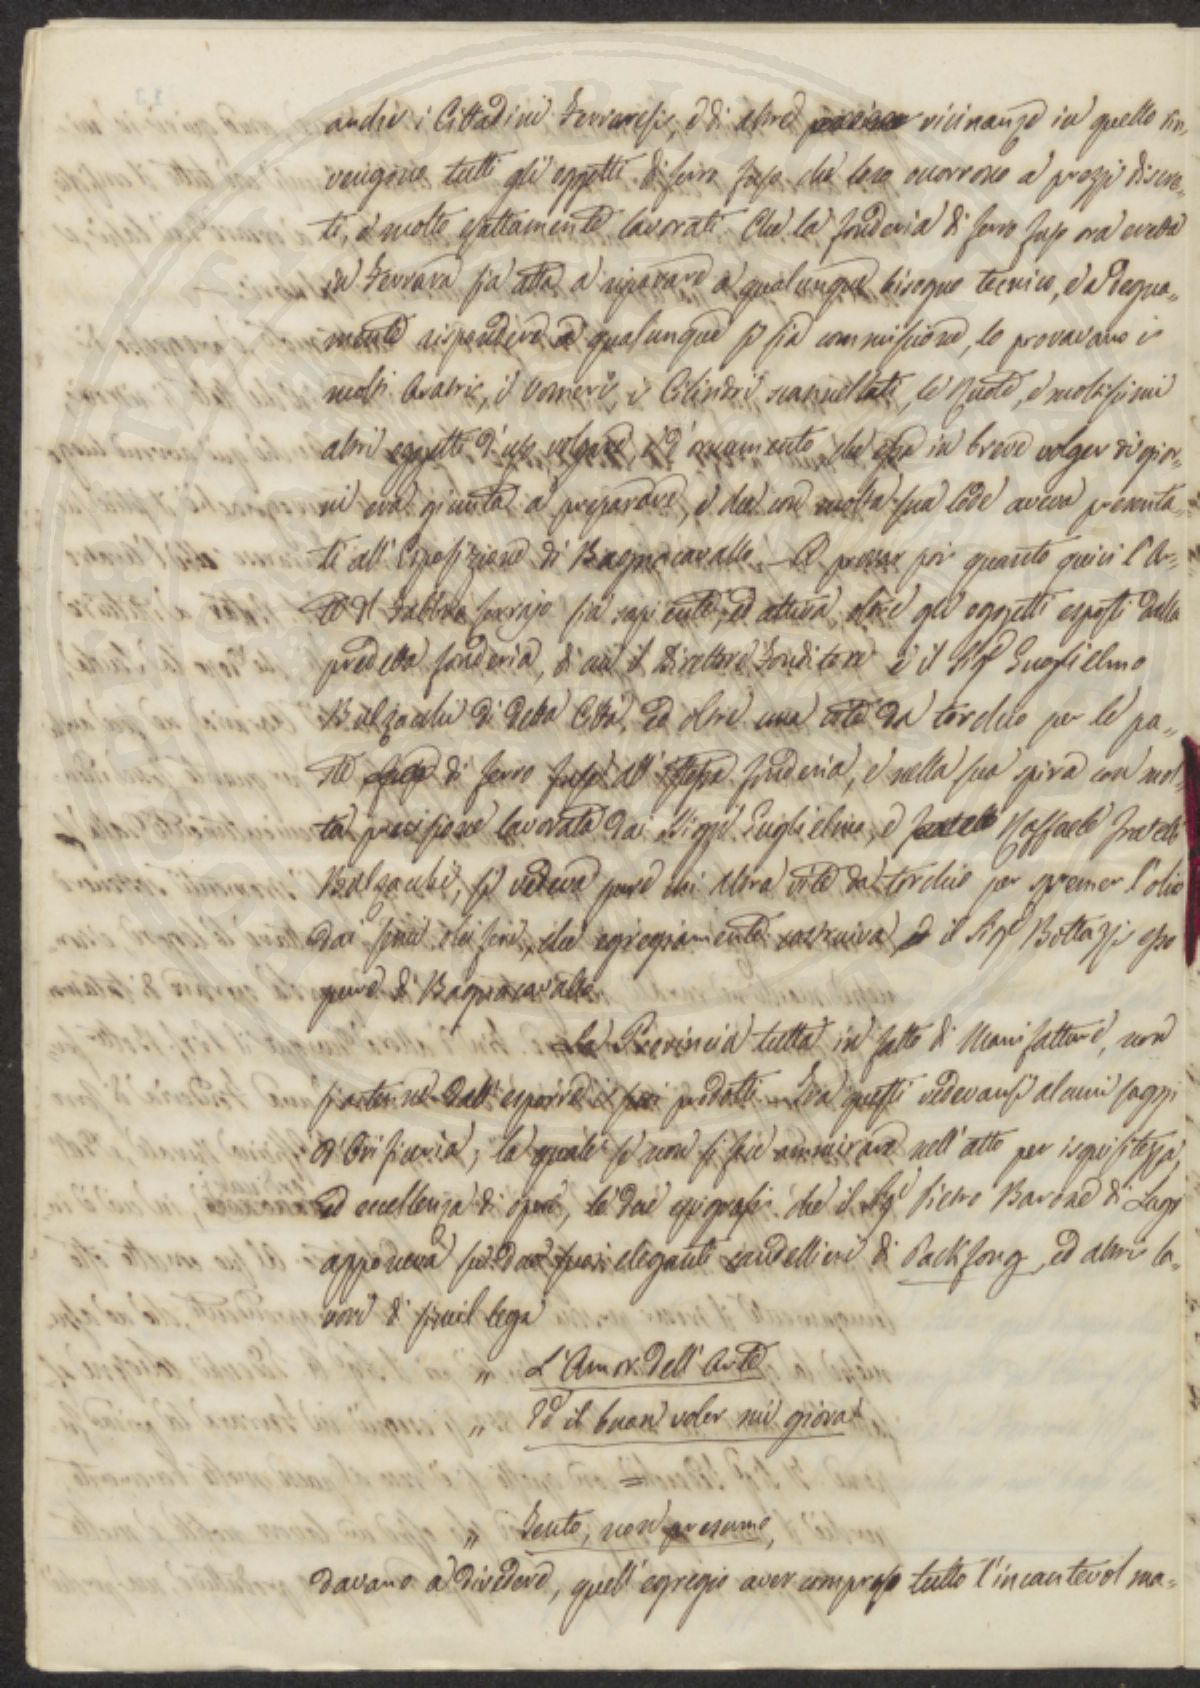 anche i Cittadini Ferraresi, e di altre vicinanze in quelle rin-
vengono tutti gli oggetti di ferro fuso che loro occorrono a prezzi discre-
ti, e molto esattamente lavorati. Che la fonderia di ferro fuso ora eretta
in Ferrara sia atta a riparare a qualunque bisogno tecnico, e adegua-
mente rispondere a qualunque si sia commissione, lo provavano i
molti Aratri, i Vomeri, i Cilindri scannellati, le Ruote, e moltissimi
altri oggetti d'uso volgare, e d'ornamento, che essa in breve volger di gior-
ni era giunta a preparare, e che con molta sua lode aveva presenta-
ti all'Esposizione di Bagnacavallo. A provar poi quanto quivi l'Ar-
te del Fabbro ferrajo sia sapiente, ed attiva, oltre gli oggetti esposti dalla
predetta fonderia, di cui il Direttore Fonditore è il Sigr Guglielmo
Balzocchi di detta Città, ed oltre una vite da torchio per le pa-
ste di ferro fuso all'istessa fonderia, e nella sua spira con mol-
ta precisione lavorata dai Sigri Guglielmo, e Raffaele fratelli
Balzocchi, si vedeva pure un'altra vite da torchio per spremer l'olio
dai semi oleiferi, che egregiamente costruiva il Sigr Bottazzi esso
pure di Bagnacavallo.
La Provincia tutta in fatto di Manifatture, non
si astenne dall'esporre i suoi prodotti. Fra questi vedevansi alcuni saggi
d'Orificeria, la quale se non si fece ammirare nell'atto per isquisitezza,
ed eccellenza di opere, le due epigrafi che il Sigr Pietro Barone di Lugo
apponeva sui due suoi eleganti candellieri di Packfong, ed altri la-
vori di simil lega
„ L'Amor dell'Arte
„ Ed il buon voler mi giova
=
„ Tento, non presumo,
davano a divedere, quell'egregio aver compreso tutto l'incantevol ma-